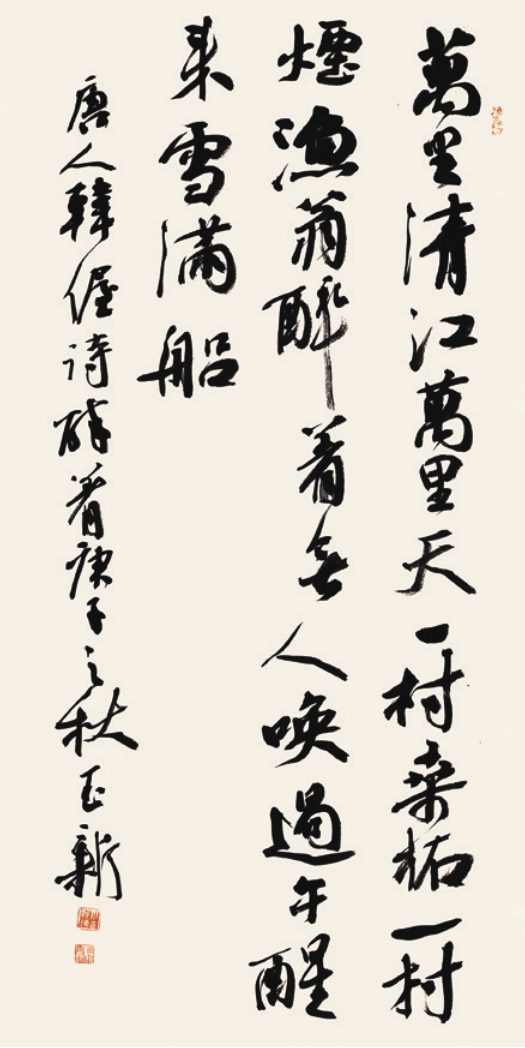 萬里清江萬里天一村桑柘一村
煙漁翁醉着無人喚過午醒
来雪滿船
唐人韓偓诗醉着庚子之秋玉新